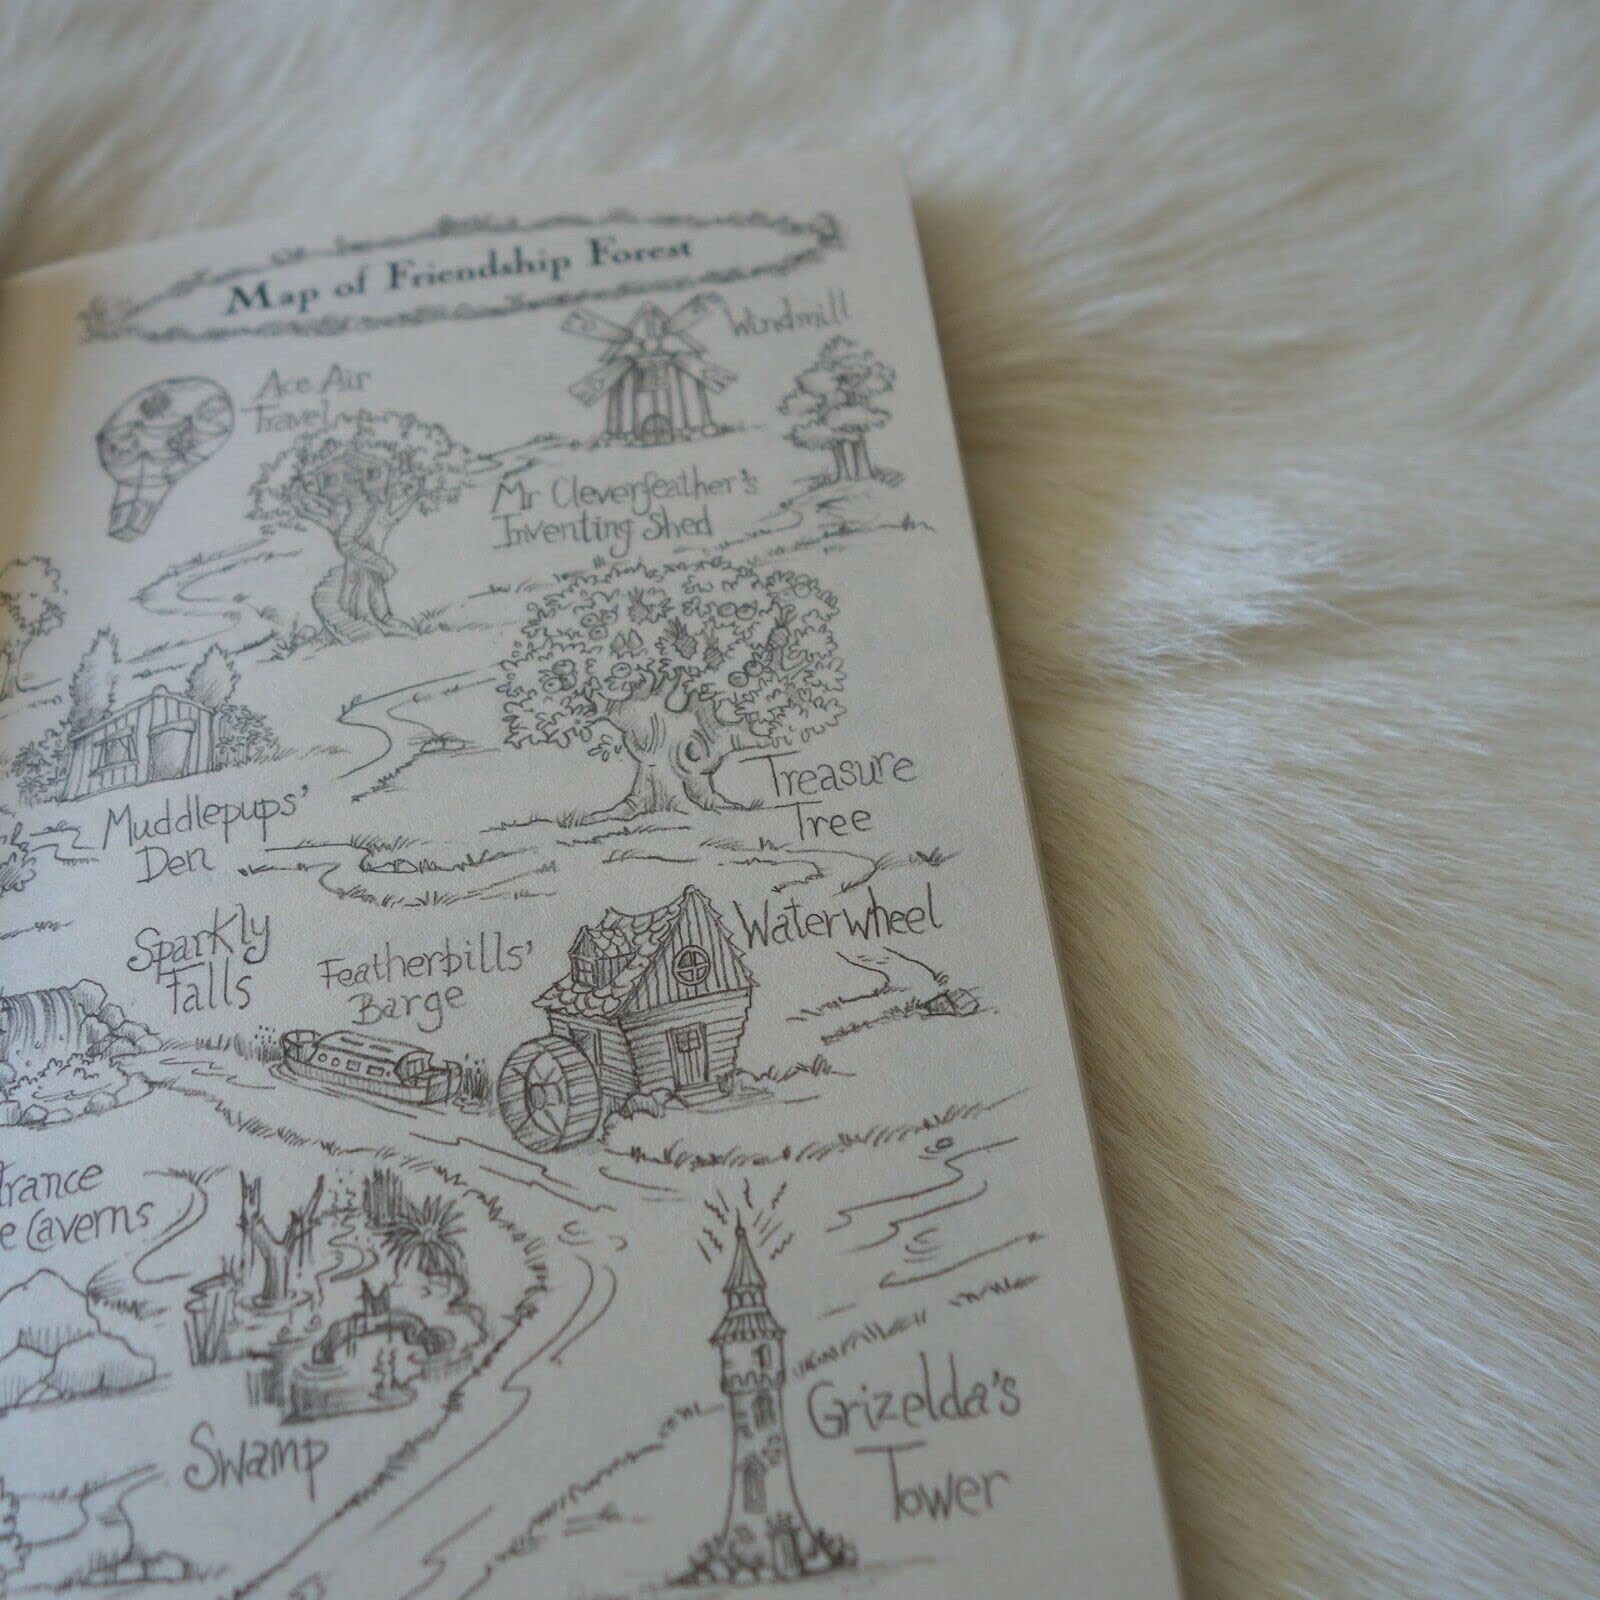 Map of Friendship Forest
Windmill
Ace Air
Travel
Mr Cleverfeather's
Inventing Shed
Treasure
Tree
Muddlepups'
Den
Waterwheel
Sparkly
Falls
Featherbills'
Barge
Caverns
Grizelda's
Tower
Swamp